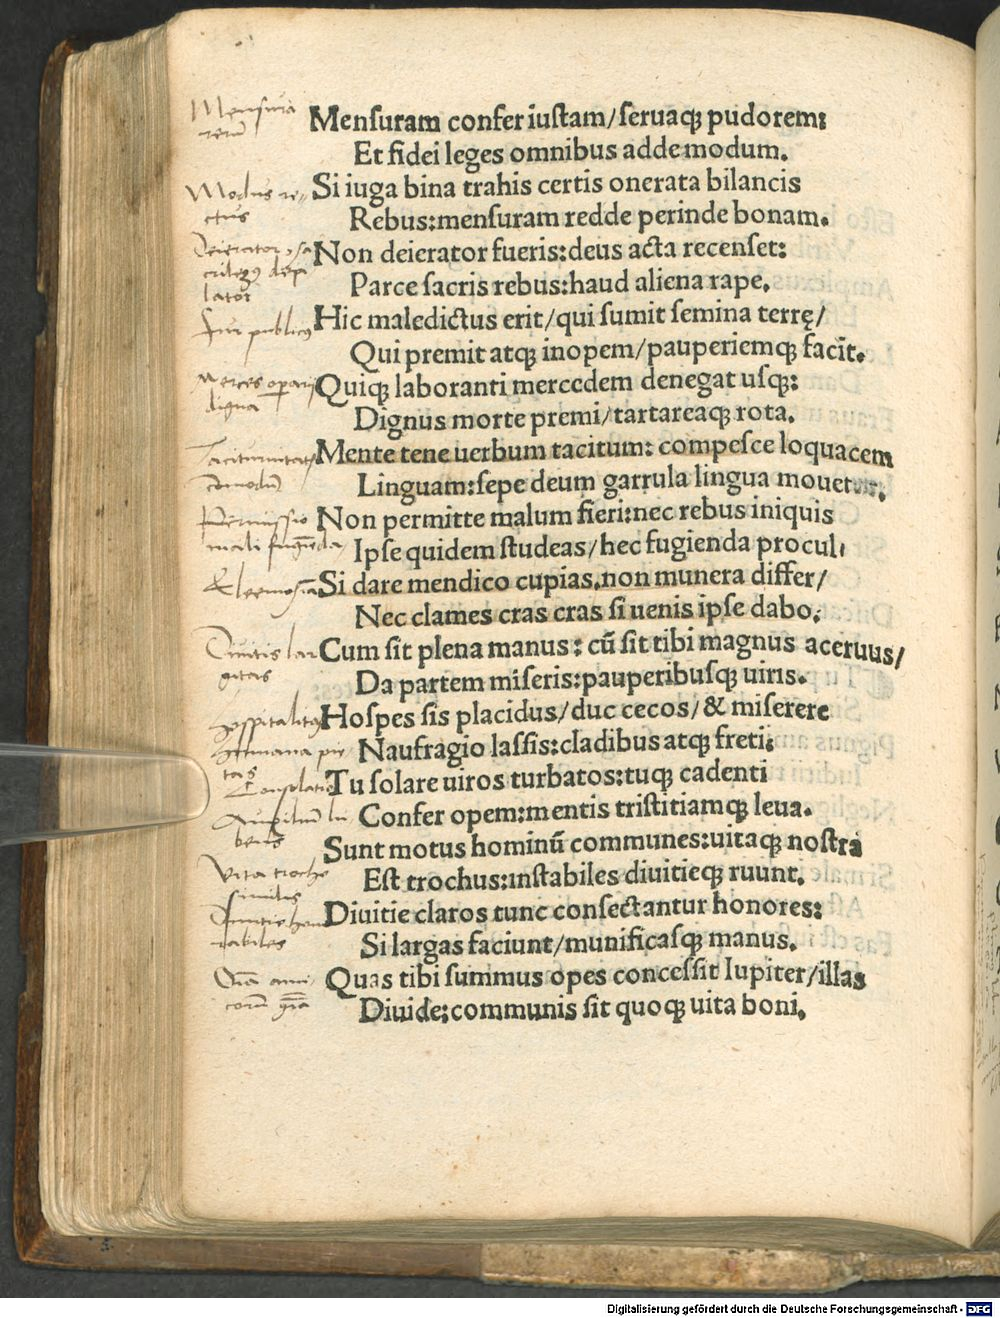 Mensura
rerum
Menſuram confer iuſtam/ſeruaqꝫ pudorem:
Et fidei leges omnibus adde modum.
Modus re-
ctus
Si iuga bina trahis certis onerata bilancis
Rebus:menſuram redde perinde bonam.
Deierator
lator
Non deierator fueris:deus acta recenſet:
Parce ſacris rebus:haud aliena rape.
Fur publicus
Hic maledictus erit/qui ſumit ſemina terrę/
Qui premit atqꝫ inopem/pauperiemqꝫ facit.
Merces operarii
digna
Quiqꝫ laboranti mercedem denegat uſqꝫ:
Dignus morte premi/tartareaqꝫ rota.
Taciturnitatis
comodum
Mente tene uerbum tacitum: compeſce loquacem
Linguam:ſepe deum garrula lingua mouetur.
Permissio
mali fugienda
Non permitte malum fieri:nec rebus iniquis
Ipſe quidem ſtudeas/hec fugienda procul.
Eleemosina
Si dare mendico cupias.non munera differ/
Nec clames cras cras ſi uenis ipſe dabo.
Divitis lar
gitas
Cum ſit plena manus: cū ſit tibi magnus aceruus/
Da partem miſeris:pauperibuſqꝫ uiris.
hospitalitas
humana pie
tas
Hoſpes ſis placidus/duc cecos/& miſerere
Naufragio laſſis:cladibus atqꝫ freti:
Consolatio
Auxilium
Tu ſolare uiros turbatos:tuqꝫ cadenti
Confer opem:mentis triſtitiamqꝫ leua.
Vita trocho
similis
Sunt motus hominū communes:uitaqꝫ noſtra
Eſt trochus:inſtabiles diuitieqꝫ ruunt.
Diuitie claros tunc conſectantur honores:
Si largas faciunt/munificaſqꝫ manus.
Quas tibi ſummus opes conceſſit Iupiter/illas
Diuide:communis ſit quoqꝫ uita boni.
Digitalisierung gefördert durch die Deutsche Forschungsgemeinschaft - DFG